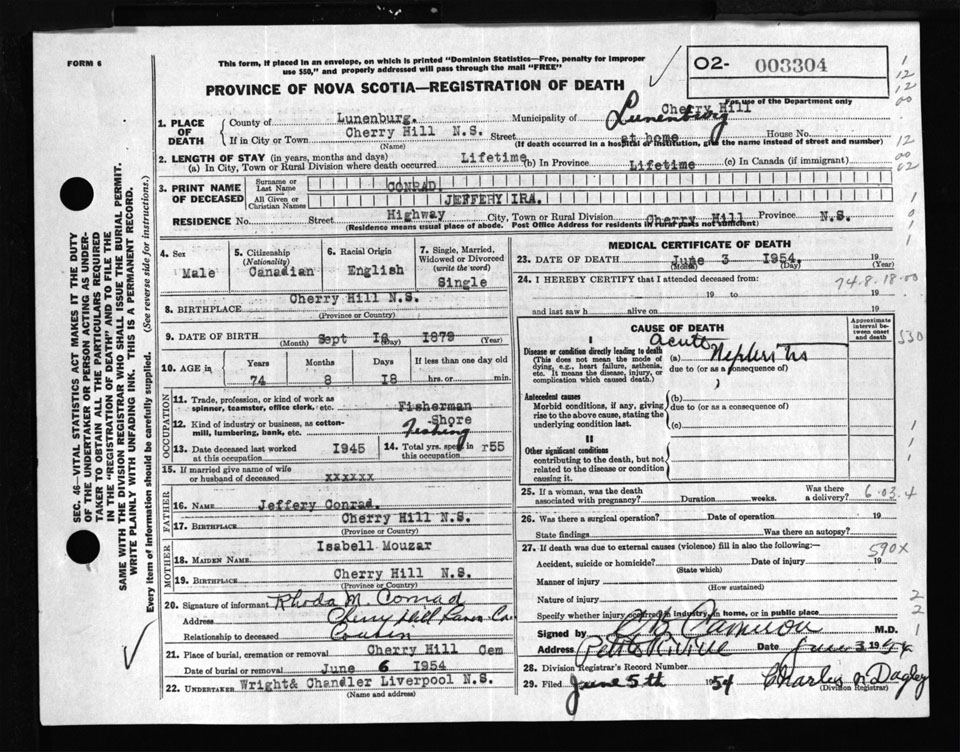 FORM 6
This form, if placed in an envelope, on which is printed "Dominion Statistics—Free, penalty for improper
use $50," and properly addressed will pass through the mail "FREE"
O2- 003304
For use of the Department only
PROVINCE OF NOVA SCOTIA—REGISTRATION OF DEATH
1. PLACE OF DEATH
County of Lunenburg. Municipality of Cherry Hill Lunenburg
If in City or Town Cherry Hill N.S. Street at home House No.
(Name) (If death occurred in a hospital or institution, give the name instead of street and number)
2. LENGTH OF STAY (in years, months and days)
(a) In City, Town or Rural Division where death occurred Lifetime (b) In Province Lifetime (c) In Canada (if immigrant)
3. PRINT NAME OF DECEASED
Surname or Last Name CONRAD.
All Given or Christian Names JEFFERY IRA.
RESIDENCE No. Street Highway City, Town or Rural Division Cherry Hill Province N.S.
(Residence means usual place of abode. Post Office Address for residents in rural parts not sufficient)
4. Sex Male
5. Citizenship (Nationality) Canadian
6. Racial Origin English
7. Single, Married, Widowed or Divorced (write the word) Single
8. BIRTHPLACE Cherry Hill N.S.
(Province or Country)
9. DATE OF BIRTH Sept 18 1879
(Month) (Day) (Year)
10. AGE in Years Months Days If less than one day old
74 8 18 hrs. or min.
OCCUPATION
11. Trade, profession, or kind of work as
spinner, teamster, office clerk, etc. Fisherman
12. Kind of industry or business, as cotton-
mill, lumbering, bank, etc. Shore Fishing
13. Date deceased last worked at this occupation 1945
14. Total yrs. spent in this occupation r55
15. If married give name of wife
or husband of deceased xxxxxx
FATHER
16. Name Jeffery Conrad.
17. Birthplace Cherry Hill N.S.
(Province or Country)
MOTHER
18. Maiden Name Isabell Mouzar
19. Birthplace Cherry Hill N.S.
(Province or Country)
20. Signature of informant Rhoda M. Conrad
Address Cherry Hill
Relationship to deceased Cousin
21. Place of burial, cremation or removal Cherry Hill Cem
Date of burial or removal June 6 1954
22. Undertaker Wright& Chandler Liverpool N.S.
(Name and address)
MEDICAL CERTIFICATE OF DEATH
23. DATE OF DEATH June 3 1954, 19
(Month) (Day) (Year)
24. I HEREBY CERTIFY that I attended deceased from:
19 to 19
and last saw h alive on 19
74.8.18.00
CAUSE OF DEATH
Approximate interval between onset and death
I
Disease or condition directly leading to death
(This does not mean the mode of
dying, e.g., heart failure, asthenia,
etc. It means the disease, injury, or
complication which caused death.)
(a) acute Nephritis
due to (or as a consequence of)
Antecedent causes
Morbid conditions, if any, giving
rise to the above cause, stating the
underlying condition last.
(b)
due to (or as a consequence of)
(c)
II
Other significant conditions
contributing to the death, but not
related to the disease or condition
causing it.
25. If a woman, was the death
associated with pregnancy? Duration weeks. Was there a delivery?
6.03.4
26. Was there a surgical operation? Date of operation 19
State findings Was there an autopsy?
27. If death was due to external causes (violence) fill in also the following:—
590X
Accident, suicide or homicide? Date of injury 19
(State which)
Manner of injury
(How sustained)
Nature of injury
Specify whether injury occurred in industry, in home, or in public place
Signed by Cameron M.D.
Address Petite Riviere Date June 3 1954
28. Division Registrar's Record Number
29. Filed June 5th 1954 Charles N Dagley
(Division Registrar)
SEC. 46—VITAL STATISTICS ACT MAKES IT THE DUTY
OF THE UNDERTAKER OR PERSON ACTING AS UNDER-
TAKER TO OBTAIN ALL THE PARTICULARS REQUIRED
IN THE "REGISTRATION OF DEATH" AND TO FILE THE
SAME WITH THE DIVISION REGISTRAR WHO SHALL ISSUE THE BURIAL PERMIT.
WRITE PLAINLY WITH UNFADING INK. THIS IS A PERMANENT RECORD.
Every item of information should be carefully supplied. (See reverse side for instructions.)